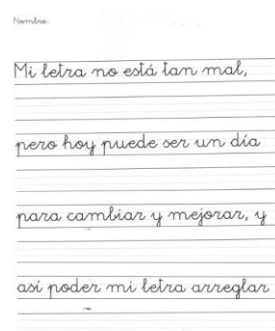 Nombre:
Mi letra no está tan mal,
pero hoy puede ser un día
para cambiar y mejorar, y
así poder mi letra arreglar